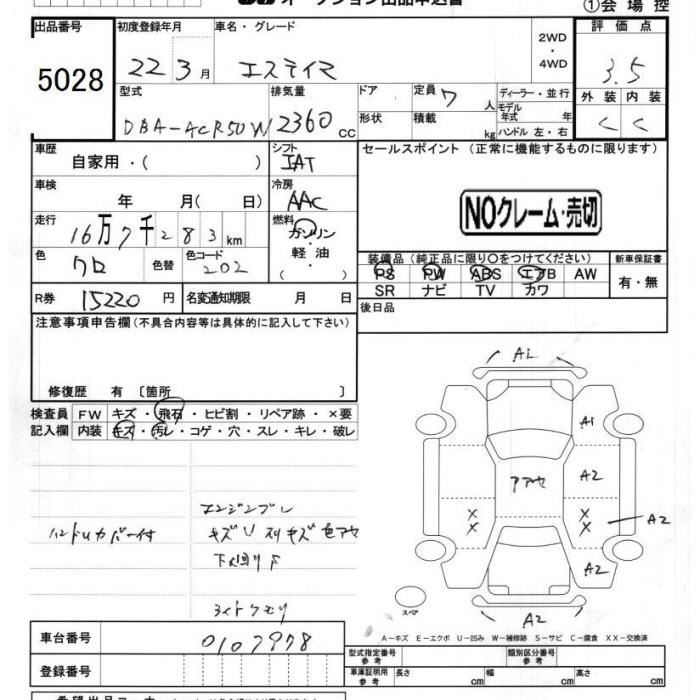 オークション出品申込書
①会場控
出品番号
5028
初度登録年月
22 3月
車名・グレード
エスティマ
2WD
・
4WD
評価点
3.5
外装 内装
C C
型式
DBA-ACR50W
排気量
2360 cc
ドア
形状
定員 7 人
積載 kg
ディーラー・並行
モデル年式 年
ハンドル 左・右
車歴
自家用・( )
シフト
IAT
セールスポイント (正常に機能するものに限ります)
NOクレーム・売切
車検
年 月(日)
冷房
AAC
走行
16万7千283km
燃料
ガソリン
軽油
・
色
クロ
色替
色コード
202
装備品 (純正品に限り〇をつけてください)
新車保証書
PS PW ABS エアB AW
有・無
SR ナビ TV カワ
R券 15220円
名変通知期限 月 日
後日品
注意事項申告欄 (不具合内容等は具体的に記入して下さい)
修復歴 有 〔箇所 〕
検査員
記入欄
FW キズ・飛石・ヒビ割・リペア跡・×要
内装 キズ・汚レ・コゲ・穴・スレ・キレ・破レ
ハンドルカバー付
エンジンブレ
キズU スリキズ 色アセ
下回りサ
ライトクモリ
A1
A1
アアセ
A2
×
×
×
×
A2
A2
A2
スペア
A-キズ E-エクボ U-凹み W-補修跡 S-サビ C-腐食 XX-交換済
車台番号
0107978
登録番号
型式指定番号
参考
類別区分番号
参考
車庫証明用
参考
長さ cm
幅 cm
高さ cm